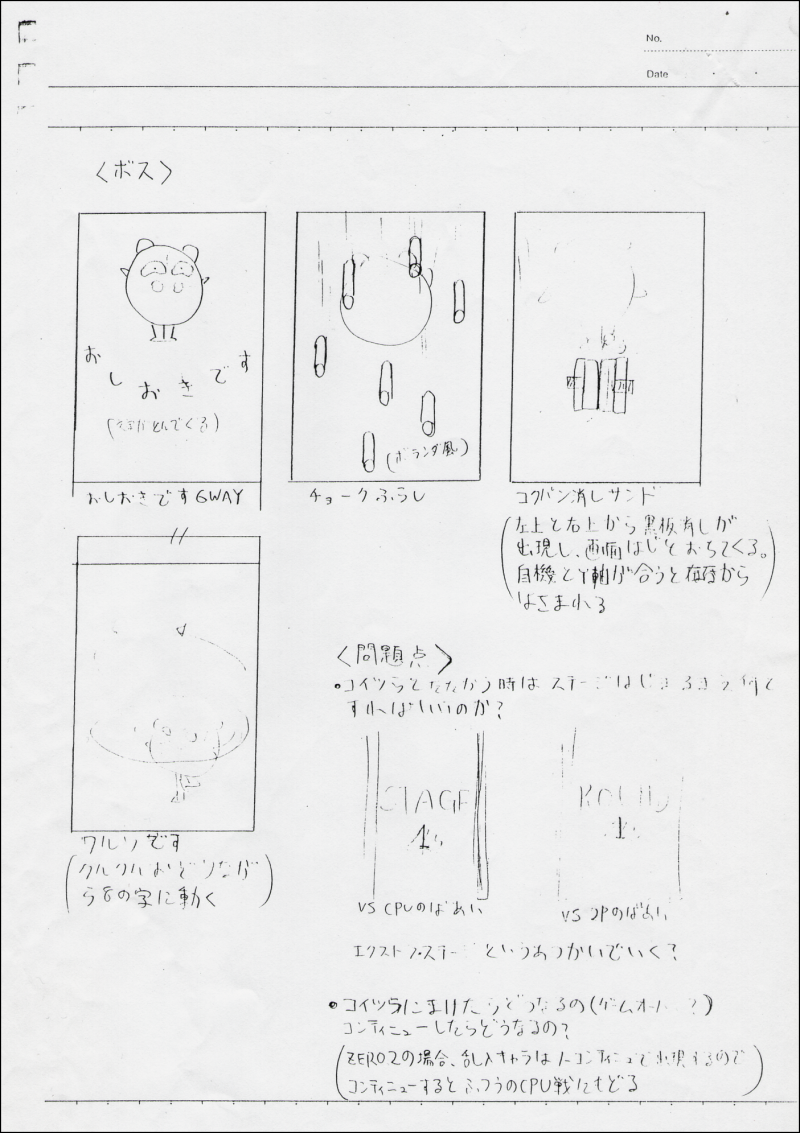 No.
Date
〈ボス〉
おしおきです
(文字がとんでくる)
おしおきです6WAY
(ボランダ風)
チョークふらし
コクバン消しサンド
(左上と右上から黒板消しが
出現し、画面はじをおちてくる。
自機とY軸が合うと左右から
はさまれる)
ワルツです
(クルクルおどりなが
ら8の字に動く)
〈問題点〉
•コイツらとたたかう時はステージはじまるとき何と
すればいいのか?
STAGE
1
VS CPUのばあい
ROUND
1
VS 2Pのばあい
エクストラステージというあつかいでいく?
•コイツラにまけたらどうなるの(ゲームオーバー?)
コンティニューしたらどうなるの?
(ZERO2の場合、乱入キャラはノーコンティニューで出現するので
コンティニューするとふつうのCPU戦にもどる)